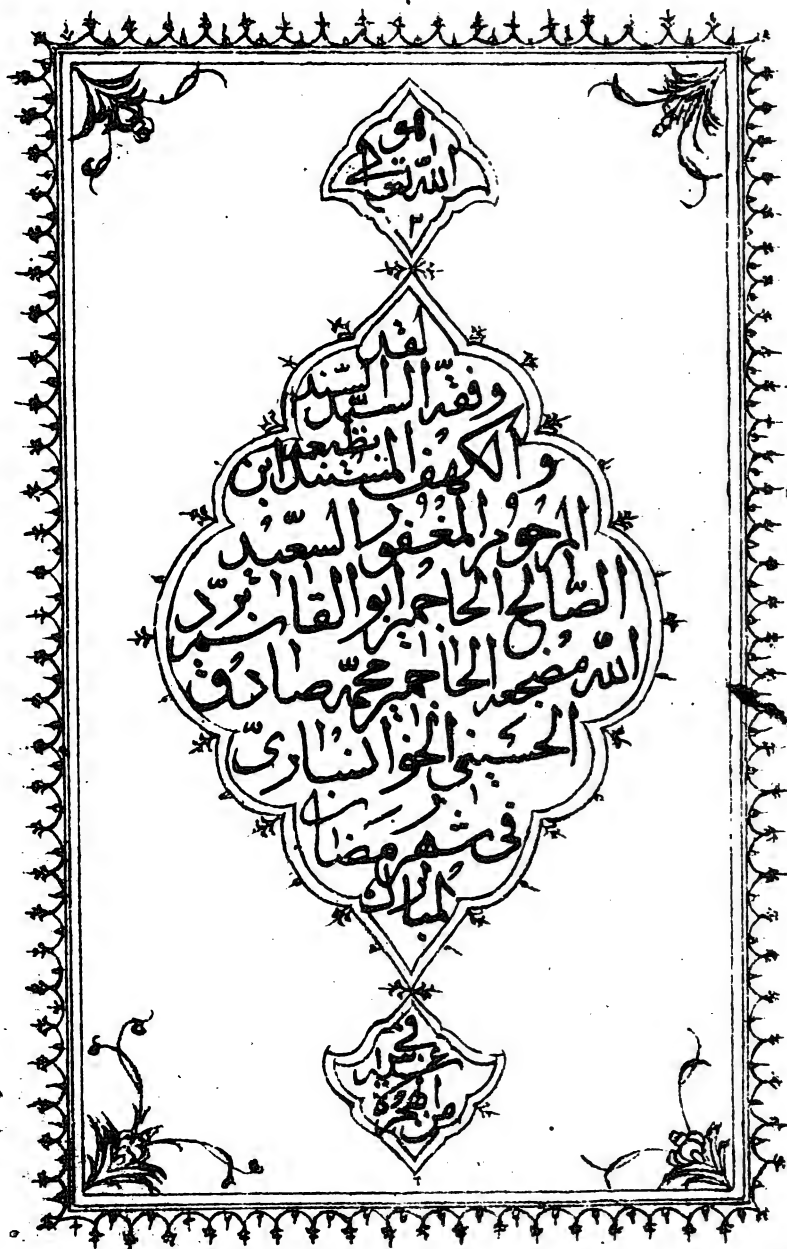 هو
الله تعالى
لقد
وفقه السيّد السّند
بطبعه
والكهف المستند ابن
المرحوم المغفور السّعيد
الصّالح الحاجمير ابو القاسم برّد
الله مضجعه الحاجمير محمّد صادق
الحسيني الخوانساريّ
في شهر رمضان
المبارك
في
من الهجرة